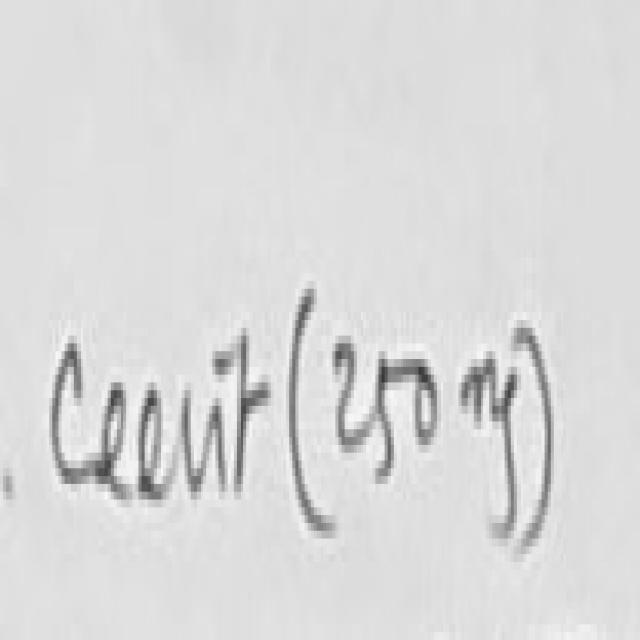 Ceevit (250 mg)